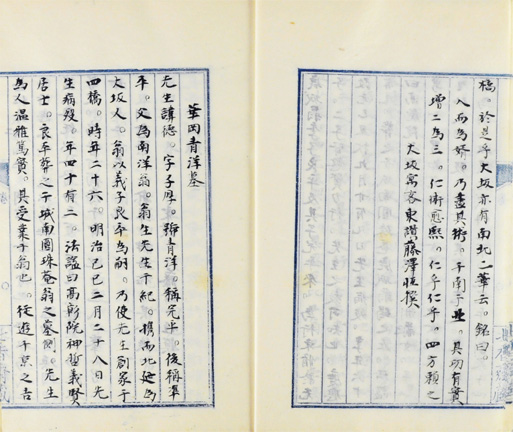 橋。於是乎大坂亦有南北二華云。銘曰。
入而為婿。乃盡其術。于南于。其功有實
增二為三。仁術愈熙。仁乎仁乎。四方賴之
大坂寓客東讃藤澤恒撰
華岡青洋墓
先生諱徳。字子厚。号青洋。稱完平。後稱準
平。父為南洋翁。翁生先生于紀。携而北為
大坂人。翁以義子良平為嗣。乃使先生創家于
四橋。時年二十六。明治己巳二月二十八日先
生病歿。年四十有二。法諡曰高新院神哲義賢
居士。良平葬之于城南圓珠菴翁之塋側。先生
為人温雅篤實。其受業于翁也。從遊于京之吉